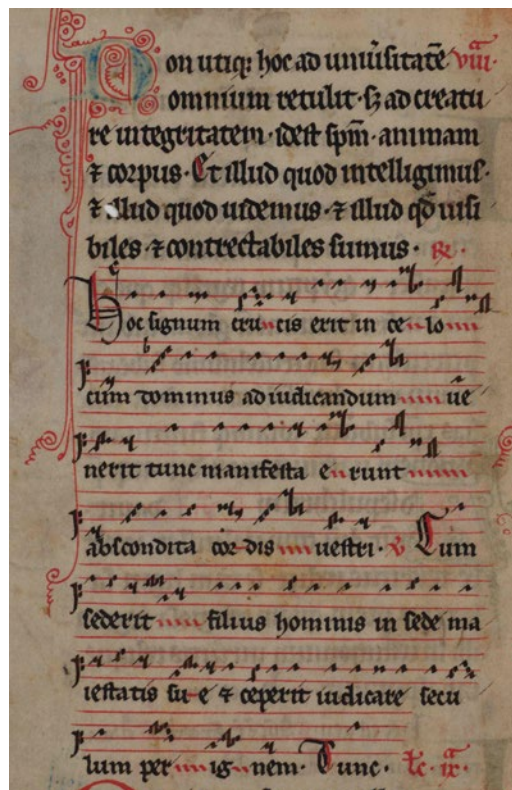 Non utiq; hoc ad uniũsitatē viii.ͣ
omnium retulit · sꝫ ad creatu
re integritatem · idest sp̄m · animam
⁊ corpus · Et illud quod intelligimus ·
⁊ illud quod uidemus · ⁊ illud qđ uisi
biles · ⁊ contrectabiles sumus · ℟
Hoc signum crucis erit in celo
cum dominus ad iudicandum uē
nerit tunc manifesta erunt
abscondita cordis uestri · ℣ Cum
sederit filius hominis in sede ma
iestatis sue ⁊ ceperit iudicare secu
lum per ignem · Tunc · Łc · ix.ͣ